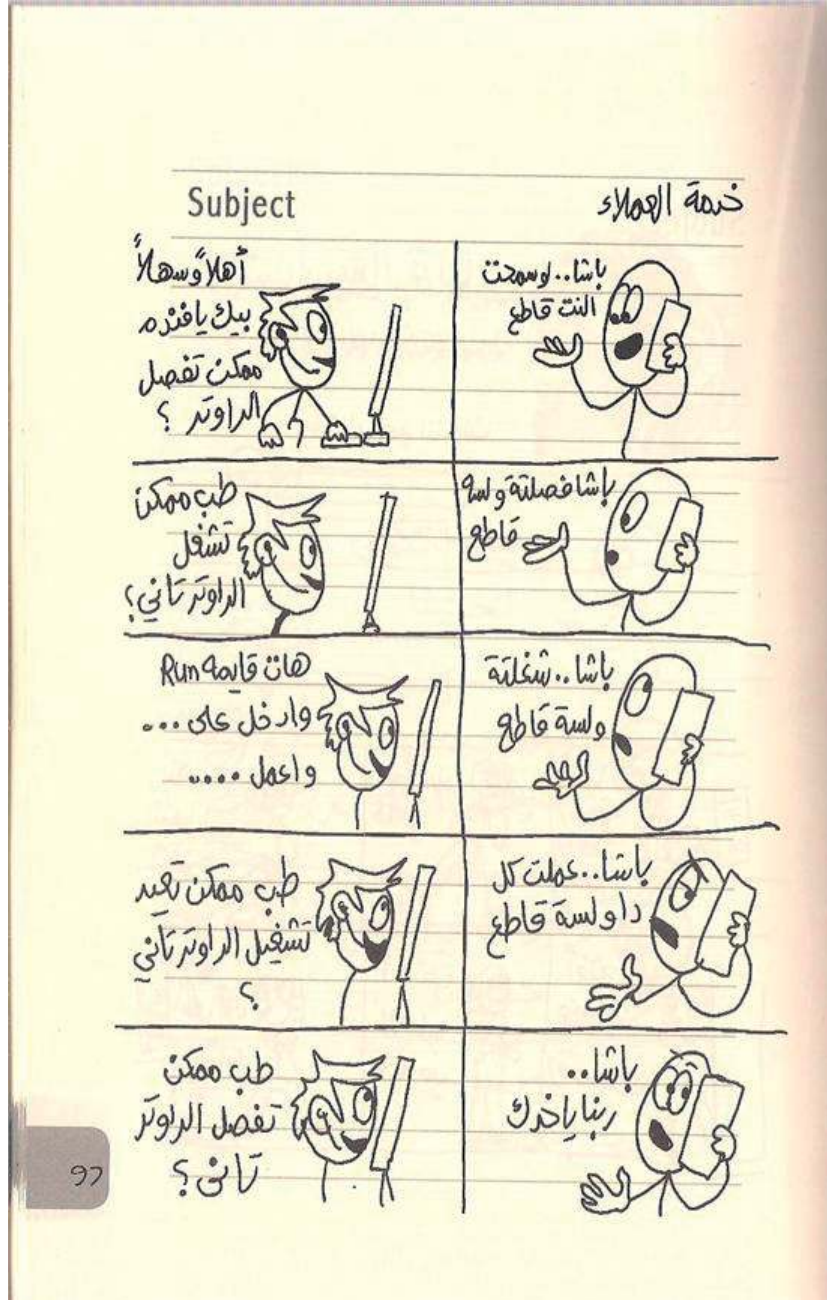 Subject
خدمة العملاء
باشا.. لو سمحت
النت قاطع
أهلاً وسهلاً
بيك يا فندم
ممكن تفصل
الراوتر ؟
باشا فصلتة ولسة
قاطع
طب ممكن
تشغل
الراوتر تاني ؟
باشا.. شغلتة
ولسة قاطع
هات قايمة Run
وادخل على ...
واعمل ....
باشا.. عملت كل
دا ولسة قاطع
طب ممكن تعيد
تشغيل الراوتر تاني
؟
باشا..
ربنا ياخدك
طب ممكن
تفصل الراوتر
تانى ؟
97